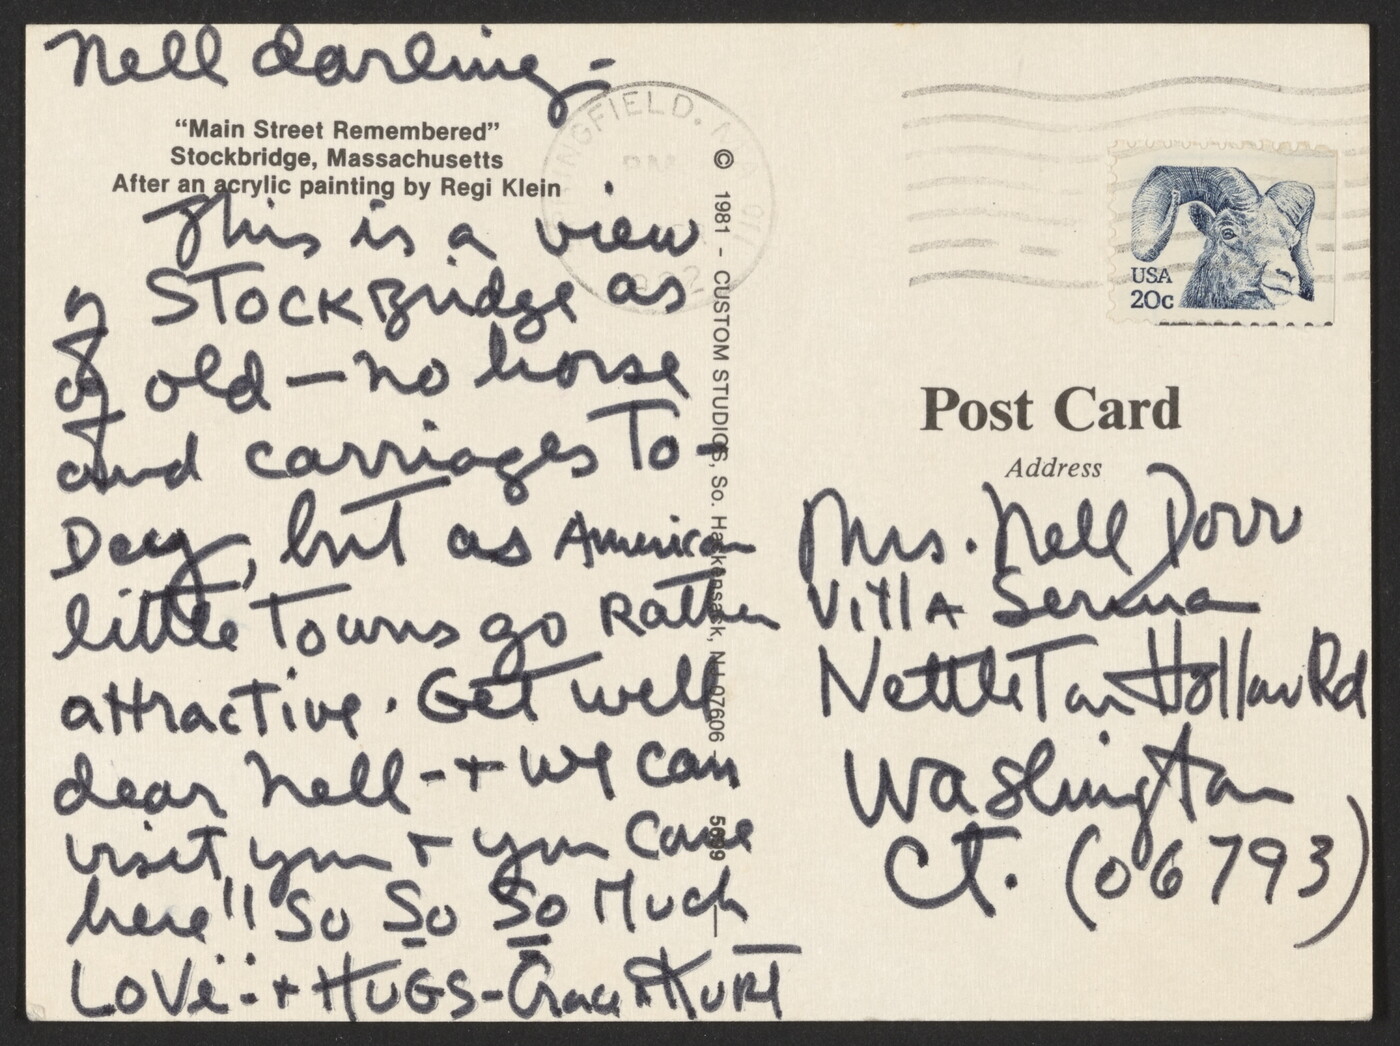 Nell darling -
"Main Street Remembered"
Stockbridge, Massachusetts
After an acrylic painting by Regi Klein
This is a view
of STOCKBridge as
of old — no horse
and carriages To-
Day, but as American
little Towns go Rather
attractive. Get well
dear Nell - + we can
visit you + you come
here!! So So So Much
LOVE!! + HUGS - Grace + KURT
SPRINGFIELD. MA 011
PM
1982
© 1981 - CUSTOM STUDIOS, So. Hackensack, NJ 07606 - 5699
USA
20c
Post Card
Address
Mrs. Nell Dorr
Villa Serena
Nettleton Hollow Rd
Washington
CT. (06793)